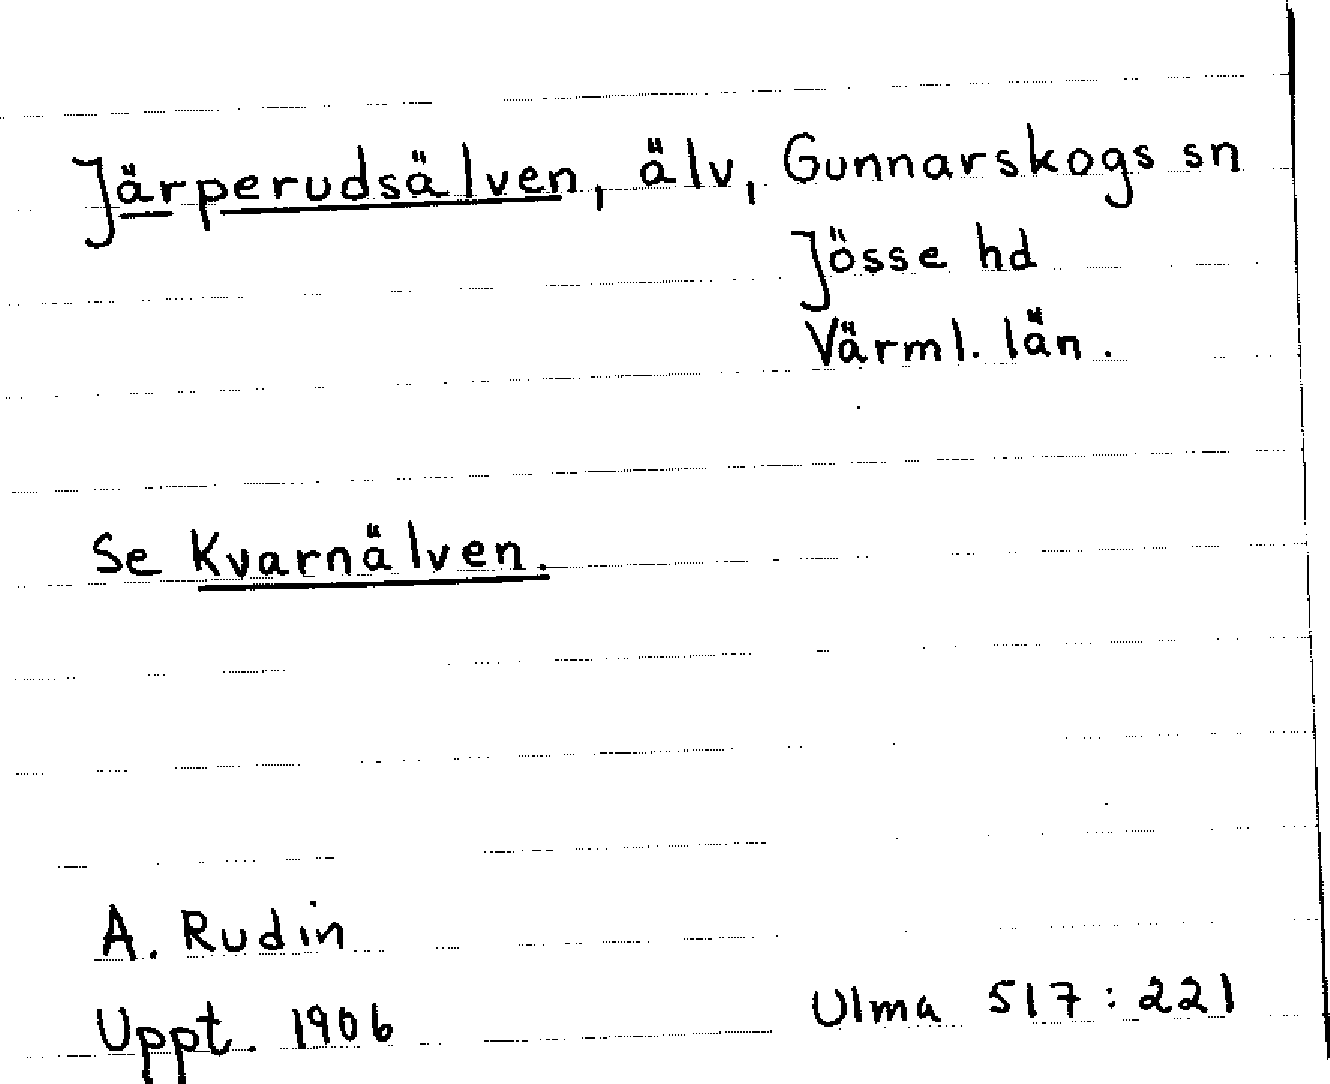 Järperudsälven, älv, Gunnarskogs sn
Jösse hd
Värml. län.
Se Kvarnälven.
A. Rudin
Uppt. 1906
Ulma 517:221